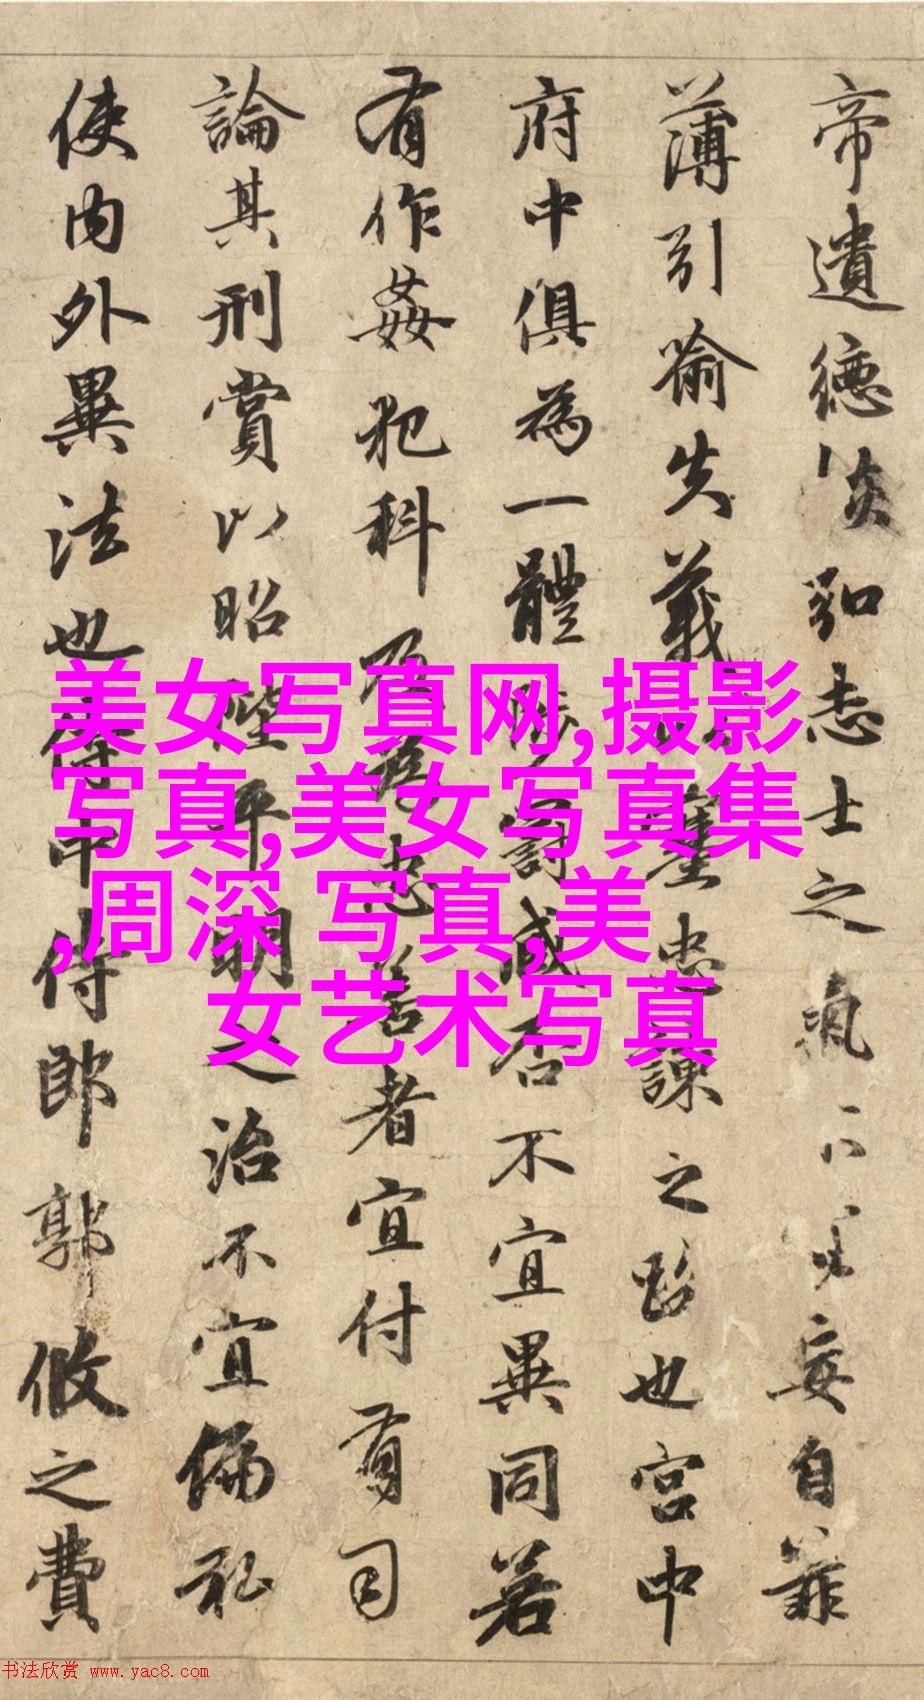 帝遺德恢弘志士之氣不妄自菲
薄引喻失義以塞忠諫之路也宮中
府中俱為一體陟罰臧否不宜異同若
有作姦犯科及為忠善者宜付有司
論其刑賞以昭陛平明之治不宜偏私
使內外異法也侍中侍郎郭攸之費
美女写真网,摄影
写真,美女写真集
,周深 写真,美
女艺术写真
书法欣赏 www.yac8.com